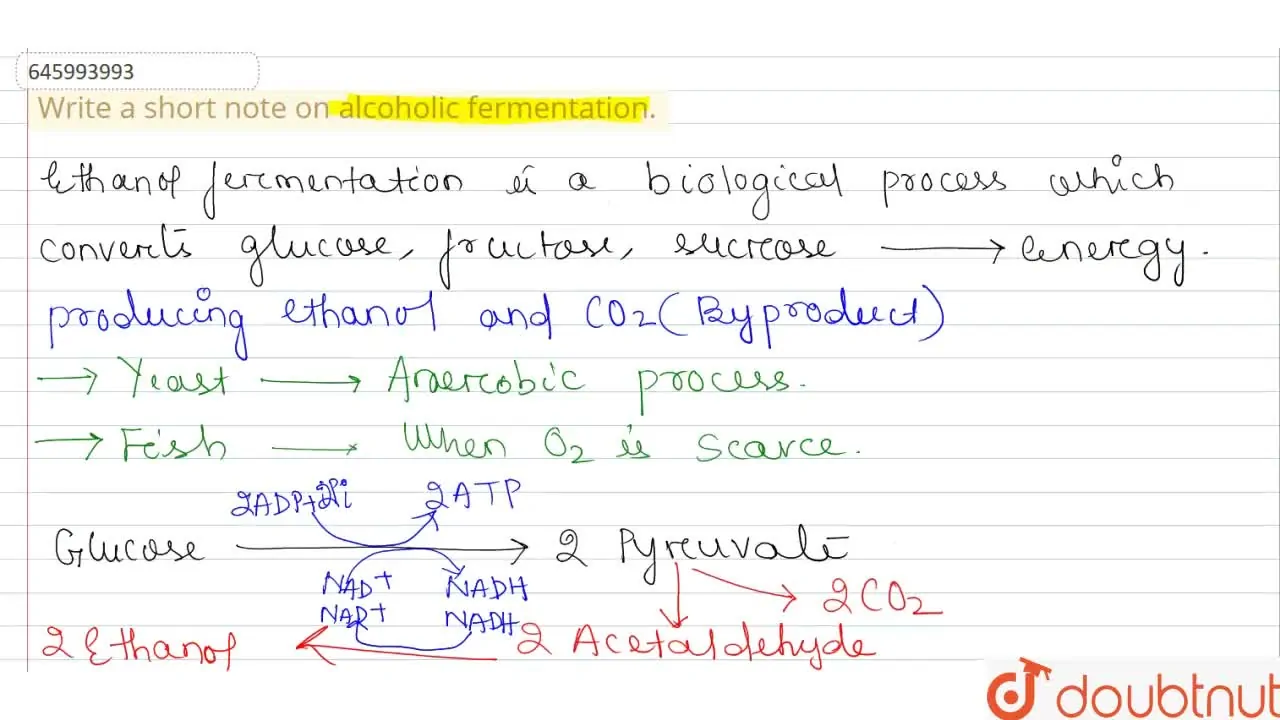 645993993
Write a short note on alcoholic fermentation.
Ethanol fermentation is a biological process which
converts glucose, fructose, sucrose → energy.
producing ethanol and CO2 (Byproduct)
→ Yeast → Anaerobic process.
→ Fish → When O2 is scarce.
2ADP+2Pi 2ATP
Glucose → 2 Pyruvate
NAD+ NADH
2CO2
NAD+ NADH
2 Ethanol ← 2 Acetaldehyde
doubtnut